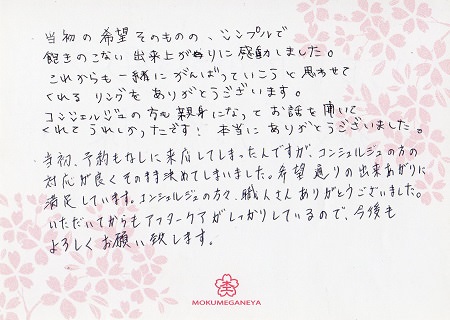 当初の希望そのものの、シンプルで
飽きのこない出来上がりに感動しました。
これからも一緒にがんばっていこうと思わせて
くれるリングをありがとうございます。
コンシェルジュの方も親身になってお話を聞いて
くれてうれしかったです！本当にありがとうございました。
当初、予約もなしに来店してしまったんですが、コンシェルジュの方の
対応が良くそのまま決めてしまいました。希望通りの出来あがりに
満足しています。コンシェルジュの方々、職人さんありがとうございました。
いただいてからもアフターケアがしっかりしているので、今後も
よろしくお願い致します。
MOKUMEGANEYA